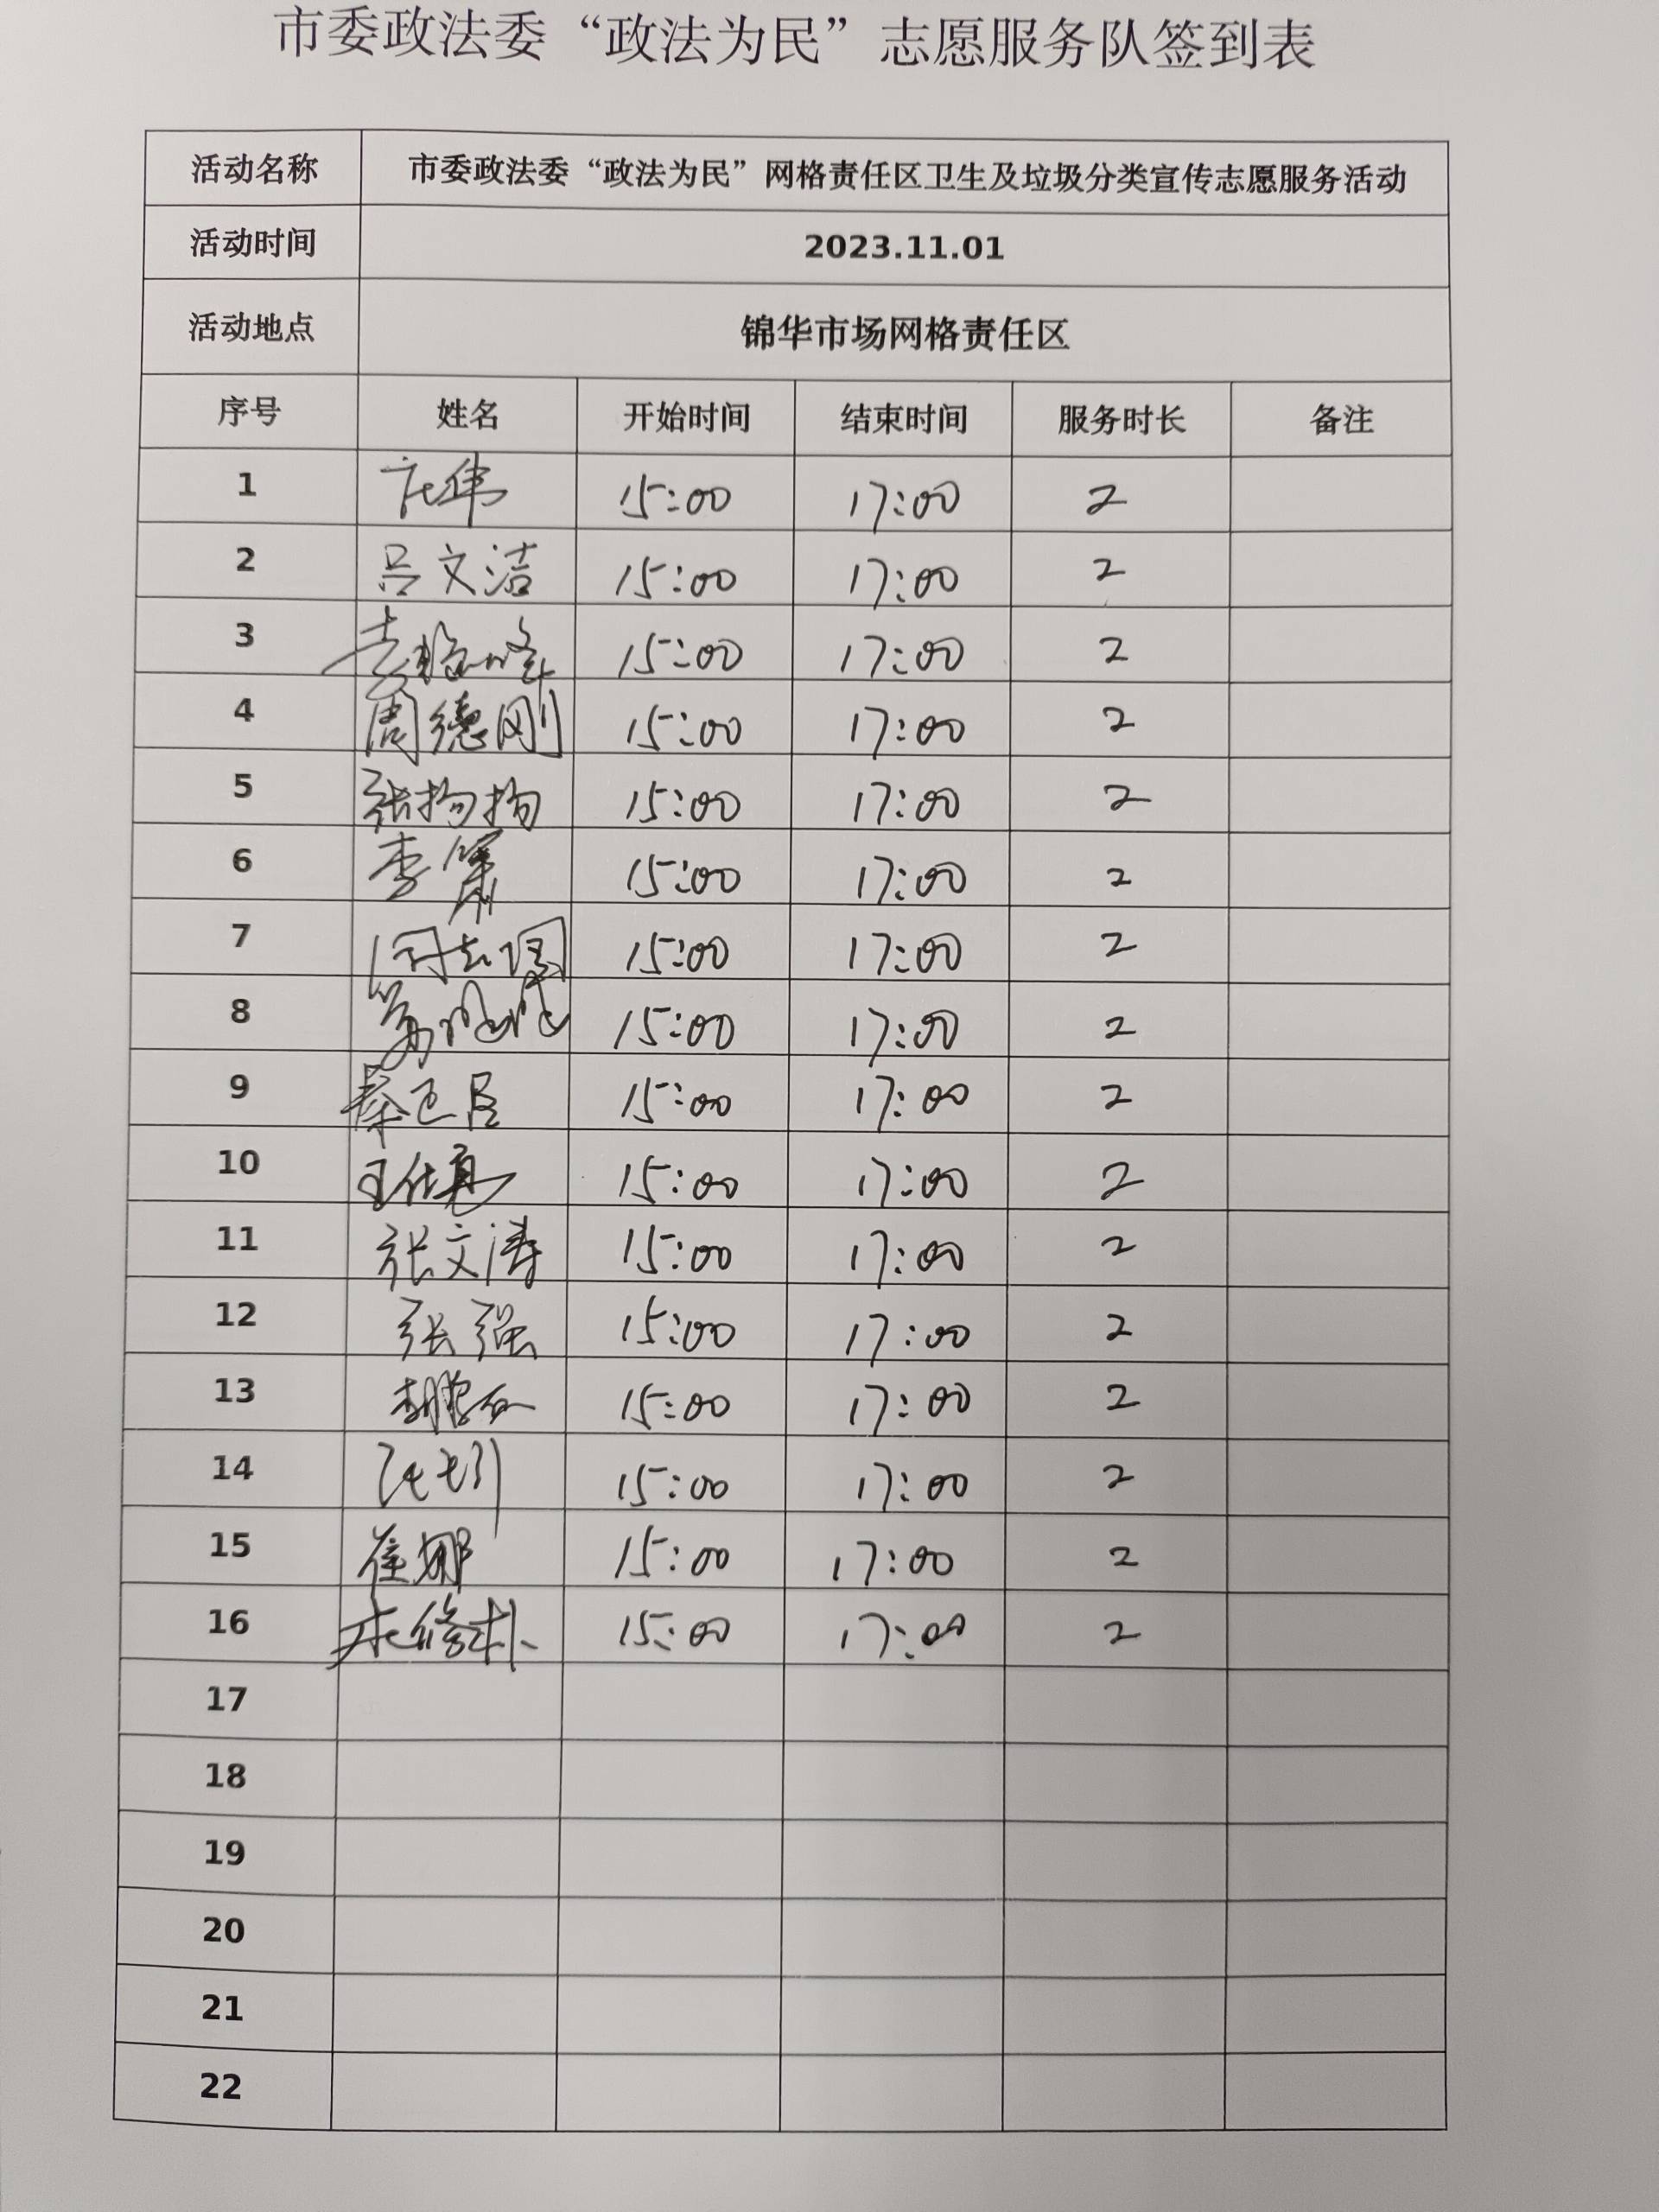 市委政法委“政法为民”志愿服务队签到表
活动名称 市委政法委“政法为民”网格责任区卫生及垃圾分类宣传志愿服务活动
活动时间 2023.11.01
活动地点 锦华市场网格责任区
序号 姓名 开始时间 结束时间 服务时长 备注
1 15:00 17:00 2
2 吕文洁 15:00 17:00 2
3 15:00 17:00 2
4 周德刚 15:00 17:00 2
5 张 15:00 17:00 2
6 李 15:00 17:00 2
7 15:00 17:00 2
8 15:00 17:00 2
9 15:00 17:00 2
10 王仕亮 15:00 17:00 2
11 张文涛 15:00 17:00 2
12 张强 15:00 17:00 2
13 李鹏 15:00 17:00 2
14 15:00 17:00 2
15 崔娜 15:00 17:00 2
16 15:00 17:00 2
17
18
19
20
21
22